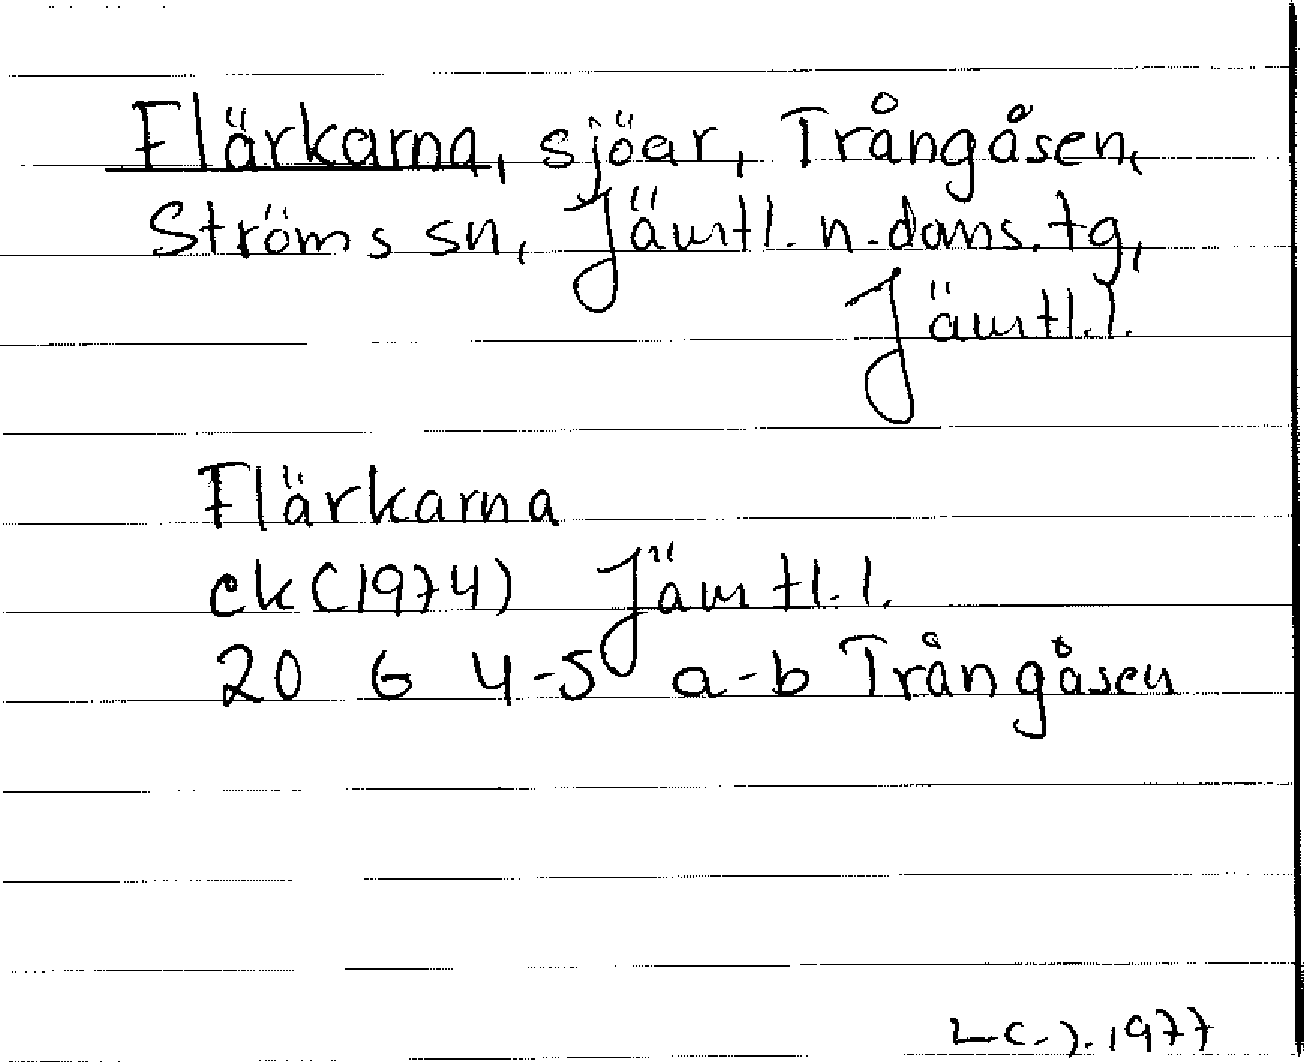 Flärkarna, sjöar, Trångåsen,
Ströms sn, Jämtl. n. doms. tg,
Jämtl. l.
Flärkarna
ek (1974) Jämtl. l.
20 G 4-5 a-b Trångåsen
1977